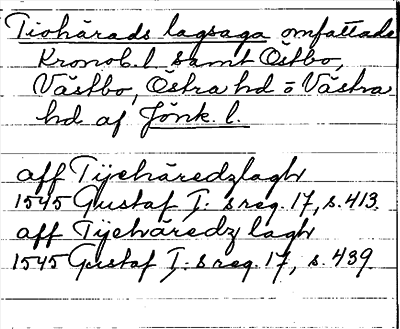 Tiohärads lagsaga omfattade
Kronob. l. samt Östbo,
Västbo, Östra hd o Västra
hd af Jönk. l.
aff Tijehäredzlagh
1545 Gustaf I:s reg. 17, s. 413.
aff Tijehäredz lagh
1545 Gustaf I:s reg. 17, s. 439.